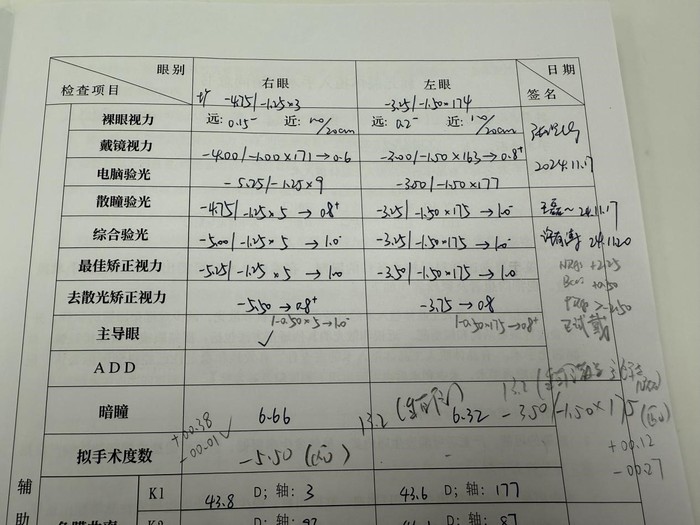 眼别 日期
检查项目 右眼 左眼 签名
-4.75/-1.25×3 -3.25/-1.50×174
裸眼视力 远: 0.15⁻ 近: 1.0/20cm 远: 0.2⁻ 近: 1.0/20cm
戴镜视力 -4.00/-1.00×171→0.6 -3.00/-1.50×163→0.8⁺ 2024.11.17
电脑验光 -5.25/-1.25×9 -3.50/-1.50×177
散瞳验光 -4.75/-1.25×5→0.8⁺ -3.25/-1.50×175→1.0⁻ 24.11.17
综合验光 -5.00/-1.25×5→1.0⁻ -3.25/-1.50×175→1.0⁻ 24.11.20
最佳矫正视力 -5.25/-1.25×5→1.0 -3.50/-1.50×175→1.0 NRA: +2.25
BCC: +0.50
去散光矫正视力 -5.50→0.8⁺ -3.75→0.8 >-2.50
/-0.50×5→1.0⁻ /-0.50×175→0.8⁺ 已试戴
主导眼 ✓
ADD
暗瞳 6.66 13.2 6.32 13.2 -3.50/-1.50×175
+00.38
-00.01✓
拟手术度数 -5.50 - +00.12
-00.27
辅助
K1 43.8 D;轴: 3 43.6 D;轴: 177